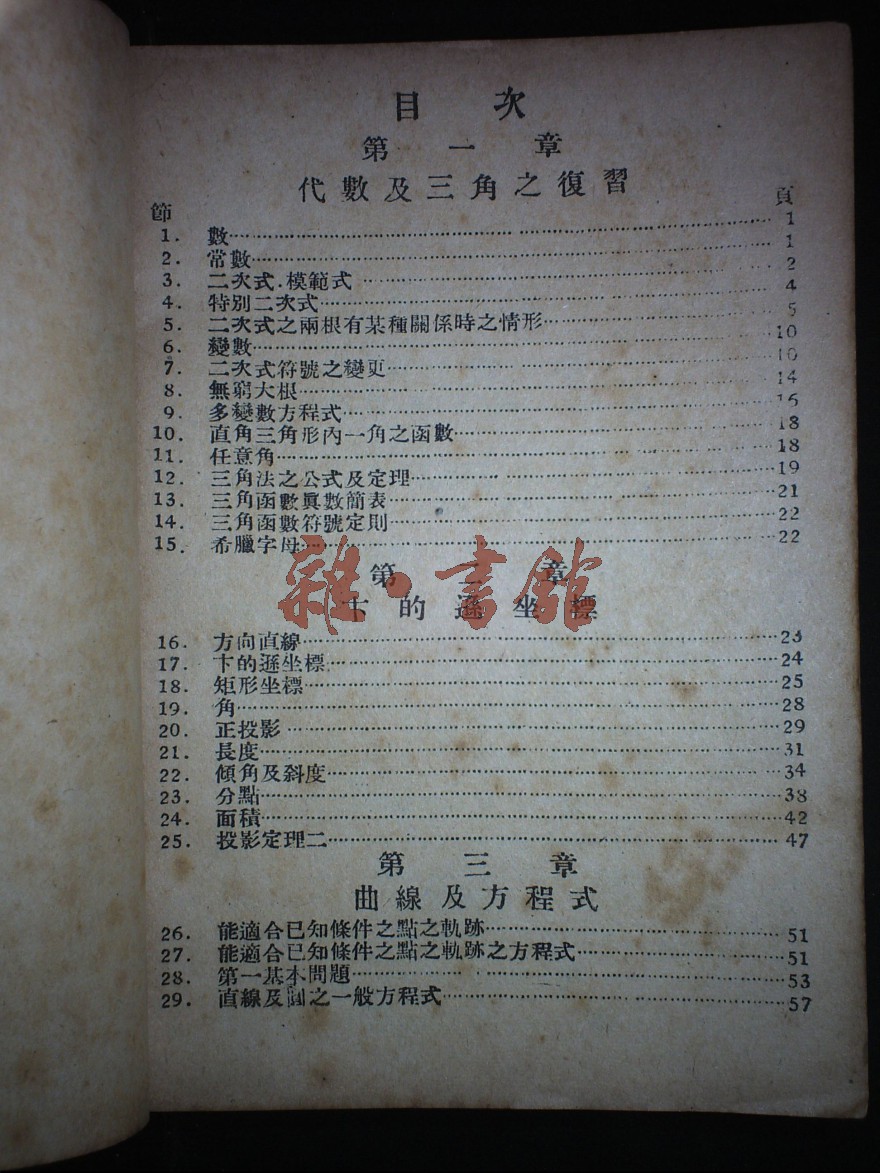 目次
第一章
代數及三角之復習
節 頁
1. 數 1
2. 常數 1
3. 二次式.模範式 2
4. 特别二次式 4
5. 二次式之兩根有某種關係時之情形 5
6. 變數 10
7. 二次式符號之變更 10
8. 無窮大根 14
9. 多變數方程式 16
10. 直角三角形內一角之函數 18
11. 任意角 18
12. 三角法之公式及定理 19
13. 三角函數眞數簡表 21
14. 三角函數符號定則 22
15. 希臘字母 22
雜·書館
第二章
卞的遜坐標
16. 方向直線 23
17. 卞的遜坐標 24
18. 矩形坐標 25
19. 角 28
20. 正投影 29
21. 長度 31
22. 傾角及斜度 34
23. 分點 38
24. 面積 42
25. 投影定理二 47
第三章
曲線及方程式
26. 能適合已知條件之點之軌跡 51
27. 能適合已知條件之點之軌跡之方程式 51
28. 第一基本問題 53
29. 直線及圓之一般方程式 57